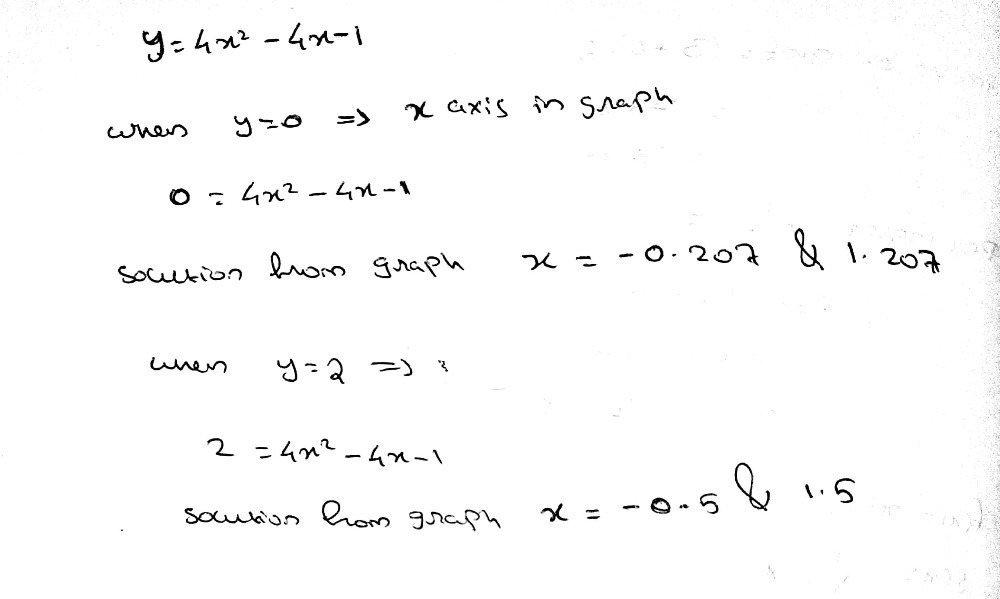 y = 4x² - 4x - 1
when y = 0 => x axis in graph
0 = 4x² - 4x - 1
solution from graph x = -0.207 & 1.207
when y = 2 =>
2 = 4x² - 4x - 1
solution from graph x = -0.5 & 1.5